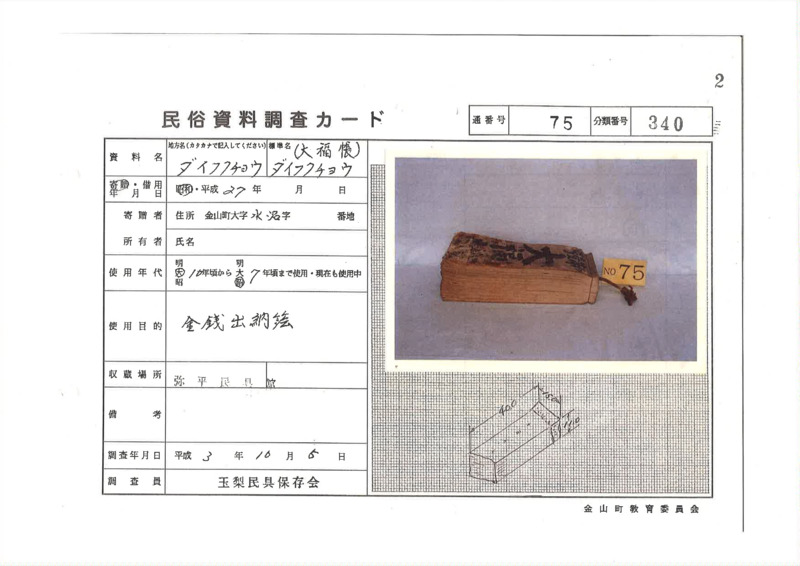 2
民俗資料調査カード
通番号 75 分類番号 340
資料名 地方名(カタカナで記入してください) ダイフクチョウ 標準名 (大福帳) ダイフクチョウ
寄贈・借用年月日 昭和・平成 27年 月 日
寄贈者 住所 金山町大字水沼字 番地
所有者 氏名
使用年代 明大昭 10年頃から 明大昭 7年頃まで使用・現在も使用中
使用目的 金銭出納
収蔵場所 弥平民具
備考
調査年月日 平成 3年 10月 5日
調査員 玉梨民具保存会
NO 75
400
金山町教育委員会